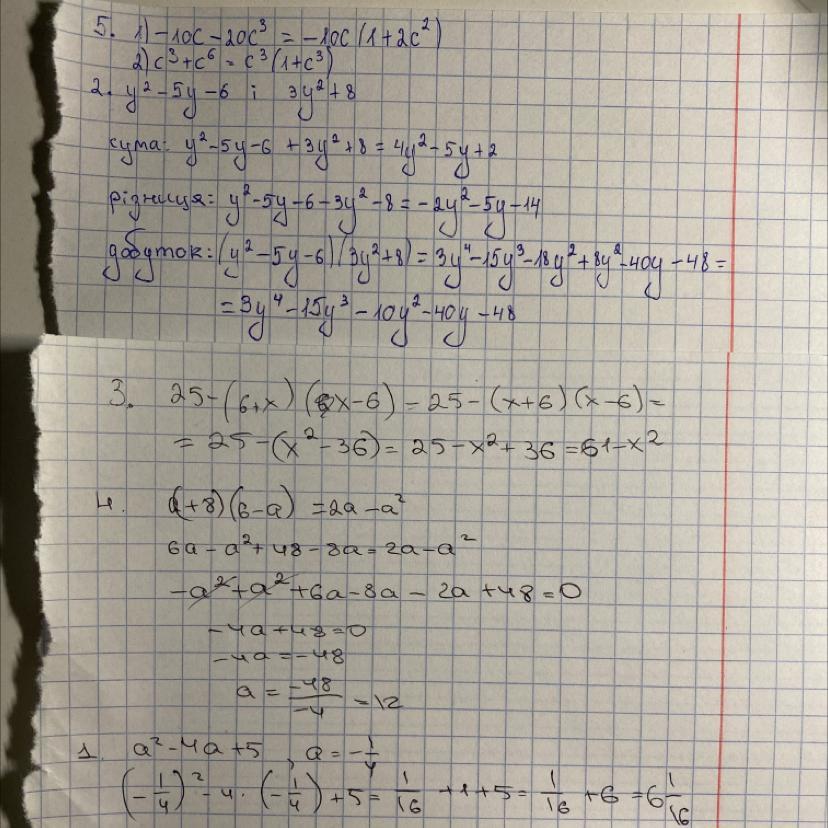 5. 1) -10c - 20c³ = -10c(1+2c²)
2) c³+c⁶ = c³(1+c³)
2. y²-5y-6 i 3y²+8
сума: y²-5y-6+3y²+8=4y²-5y+2
різниця: y²-5y-6-3y²-8=-2y²-5y-14
добуток: (y²-5y-6)(3y²+8)=3y⁴-15y³-18y²+8y²-40y-48=
=3y⁴-15y³-10y²-40y-48
3. 25-(6+x)(x-6)=25-(x+6)(x-6)=
=25-(x²-36)=25-x²+36=61-x²
4. (a+8)(6-a)=2a-a²
6a-a²+48-8a=2a-a²
-a²+a²+6a-8a-2a+48=0
-4a+48=0
-4a=-48
a=-48/-4=12
1. a²-4a+5, a=-1/4
(-1/4)²-4·(-1/4)+5=1/16+1+5=1/16+6=6 1/16